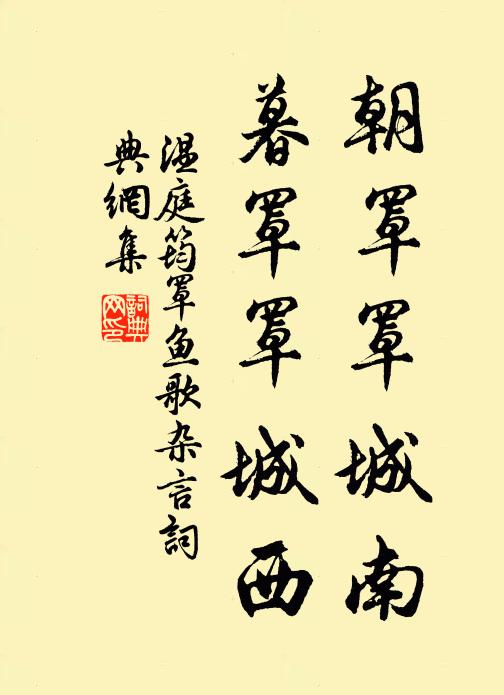 朝罩罩城南
暮罩罩城西
温庭筠罩鱼歌杂言詞
典網集
詞典网印